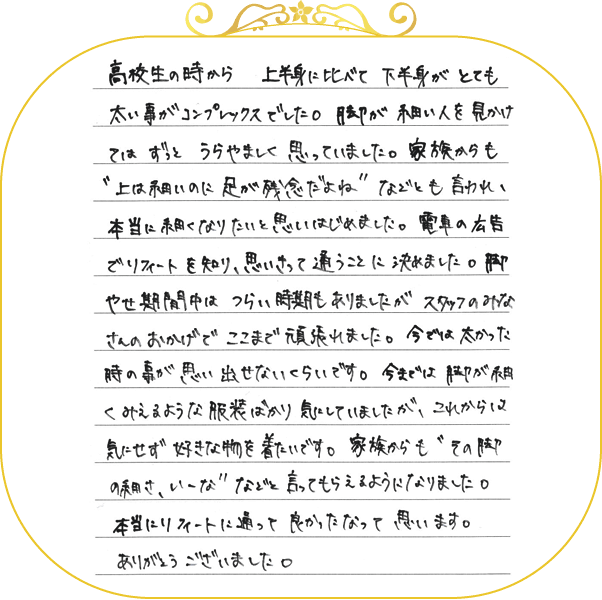 高校生の時から　上半身に比べて 下半身が とても
太い事がコンプレックスでした。脚が 細い人を 見かけ
ては ずっと うらやましく 思っていました。家族からも
"上は細いのに 足が残念だよね" などとも 言われ、
本当に細くなりたいと思いはじめました。電車の広告
でリフィートを知り、思いきって通うことに決めました。脚
やせ期間中は つらい時期もありましたが スタッフのみな
さんのおかげで ここまで頑張れました。今では太かった
時の事が思い出せないくらいです。今までは 脚が細
くみえるような服装ばかり気にしていましたが、これからは
気にせず 好きな物を着たいです。家族からも"その脚
の細さ、いーな" などと言ってもらえるようになりました。
本当にリフィートに通って 良かったなって 思います。
ありがとうございました。